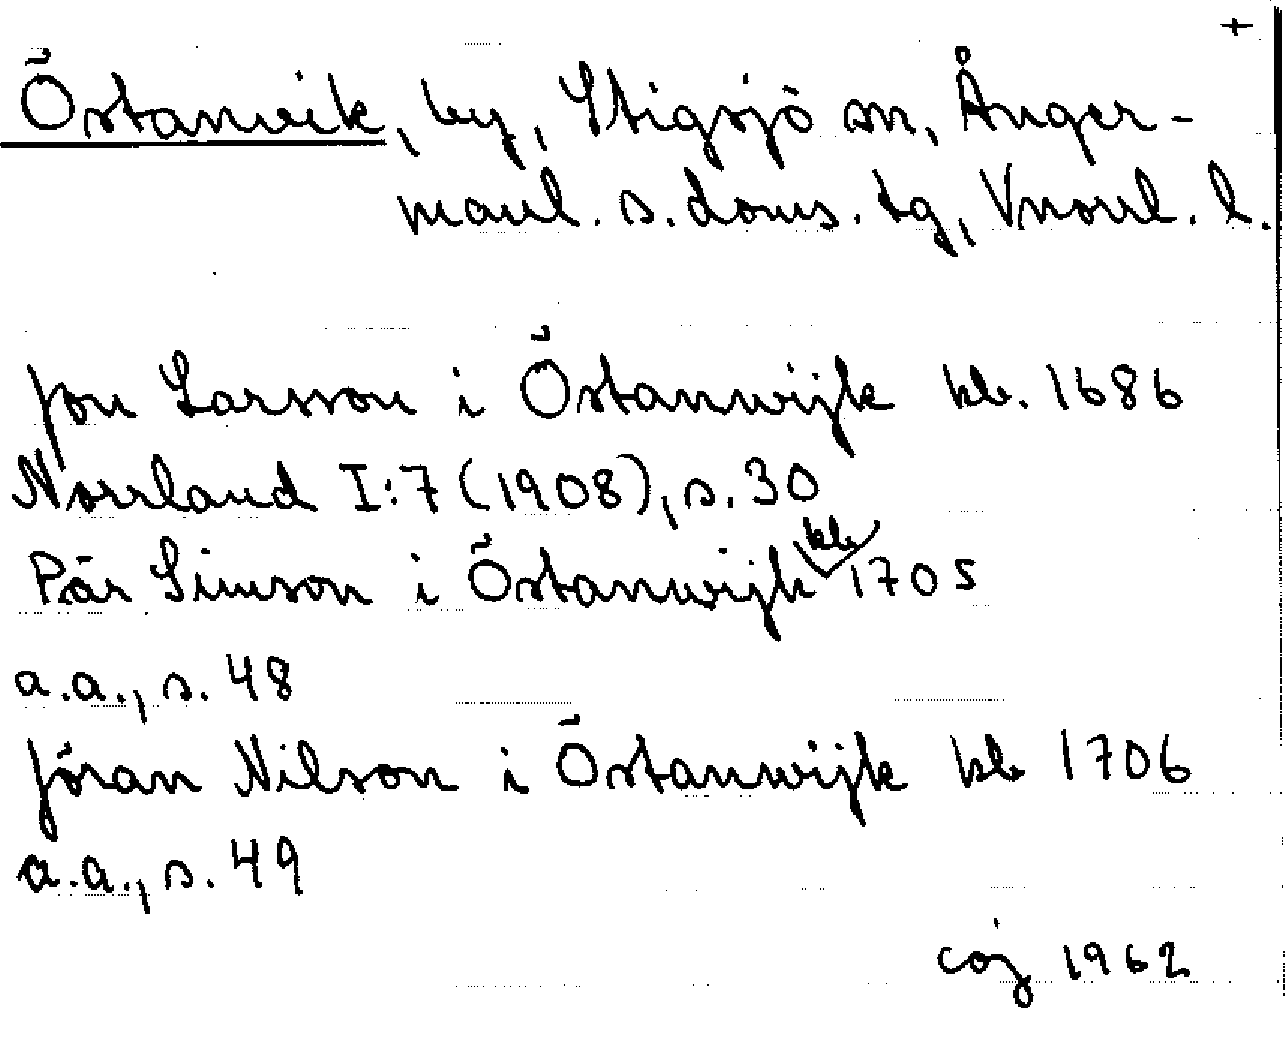 +
Östanvik, by, Stigsjö sn, Ånger-
manl. s. doms. tg, Vnorrl. l.
Jon Larsson i Östanwijk kb. 1686
Norrland I:7 (1908), s. 30
Pär Simson i Östanwijk kb 1705
a.a., s. 48
Jöran Nilson i Östanwijk kb 1706
a.a., s. 49
CÖJ 1962